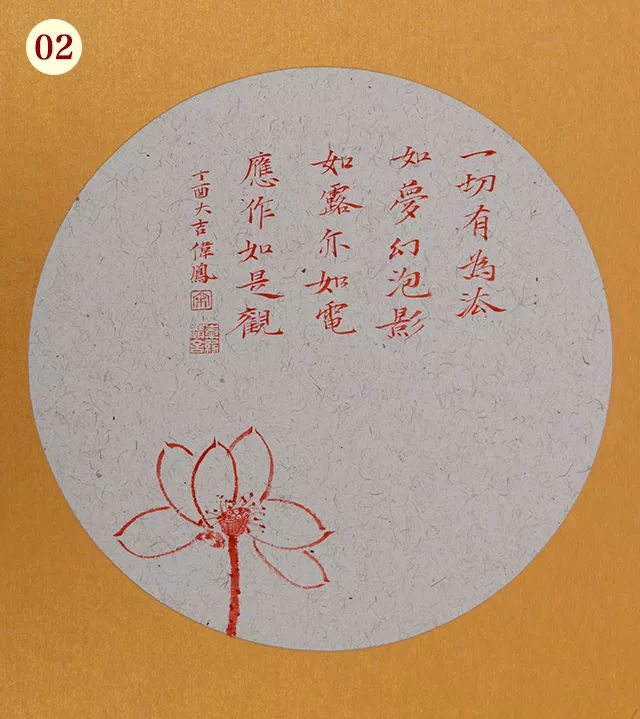 02
一切有為法
如夢幻泡影
如露亦如電
應作如是觀
丁酉大吉偉鳳